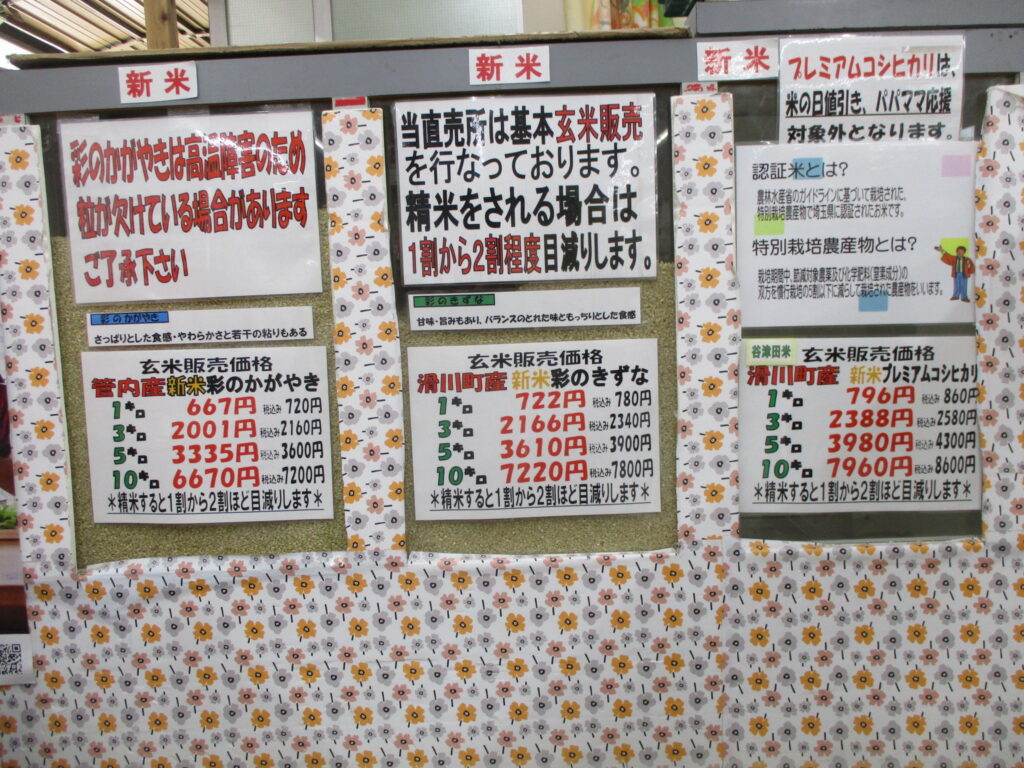 新米
彩のかがやきは高温障害のため
粒が欠けている場合があります
ご了承下さい
彩のかがやき
さっぱりとした食感・やわらかさと若干の粘りもある
玄米販売価格
管内産 新米 彩のかがやき
1キロ 667円 税込み 720円
3キロ 2001円 税込み 2160円
5キロ 3335円 税込み 3600円
10キロ 6670円 税込み 7200円
*精米すると1割から2割ほど目減りします*
新米
当直売所は基本玄米販売
を行なっております。
精米をされる場合は
1割から2割程度目減りします。
彩のきずな
甘味・旨みもあり、バランスのとれた味ともっちりとした食感
玄米販売価格
滑川町産 新米 彩のきずな
1キロ 722円 税込み 780円
3キロ 2166円 税込み 2340円
5キロ 3610円 税込み 3900円
10キロ 7220円 税込み 7800円
*精米すると1割から2割ほど目減りします*
新米
プレミアムコシヒカリは、
米の日値引き、パパママ応援
対象外となります。
認証米とは?
農林水産省のガイドラインに基づいて栽培された、
特別栽培農産物で埼玉県に認証されたお米です。
特別栽培農産物とは?
栽培期間中、節減対象農薬及び化学肥料(窒素成分)の
双方を慣行栽培の5割以下に減らして栽培された農産物をいいます。
谷津田米 玄米販売価格
滑川町産 新米 プレミアムコシヒカリ
1キロ 796円 税込み 860円
3キロ 2388円 税込み 2580円
5キロ 3980円 税込み 4300円
10キロ 7960円 税込み 8600円
*精米すると1割から2割ほど目減りします*